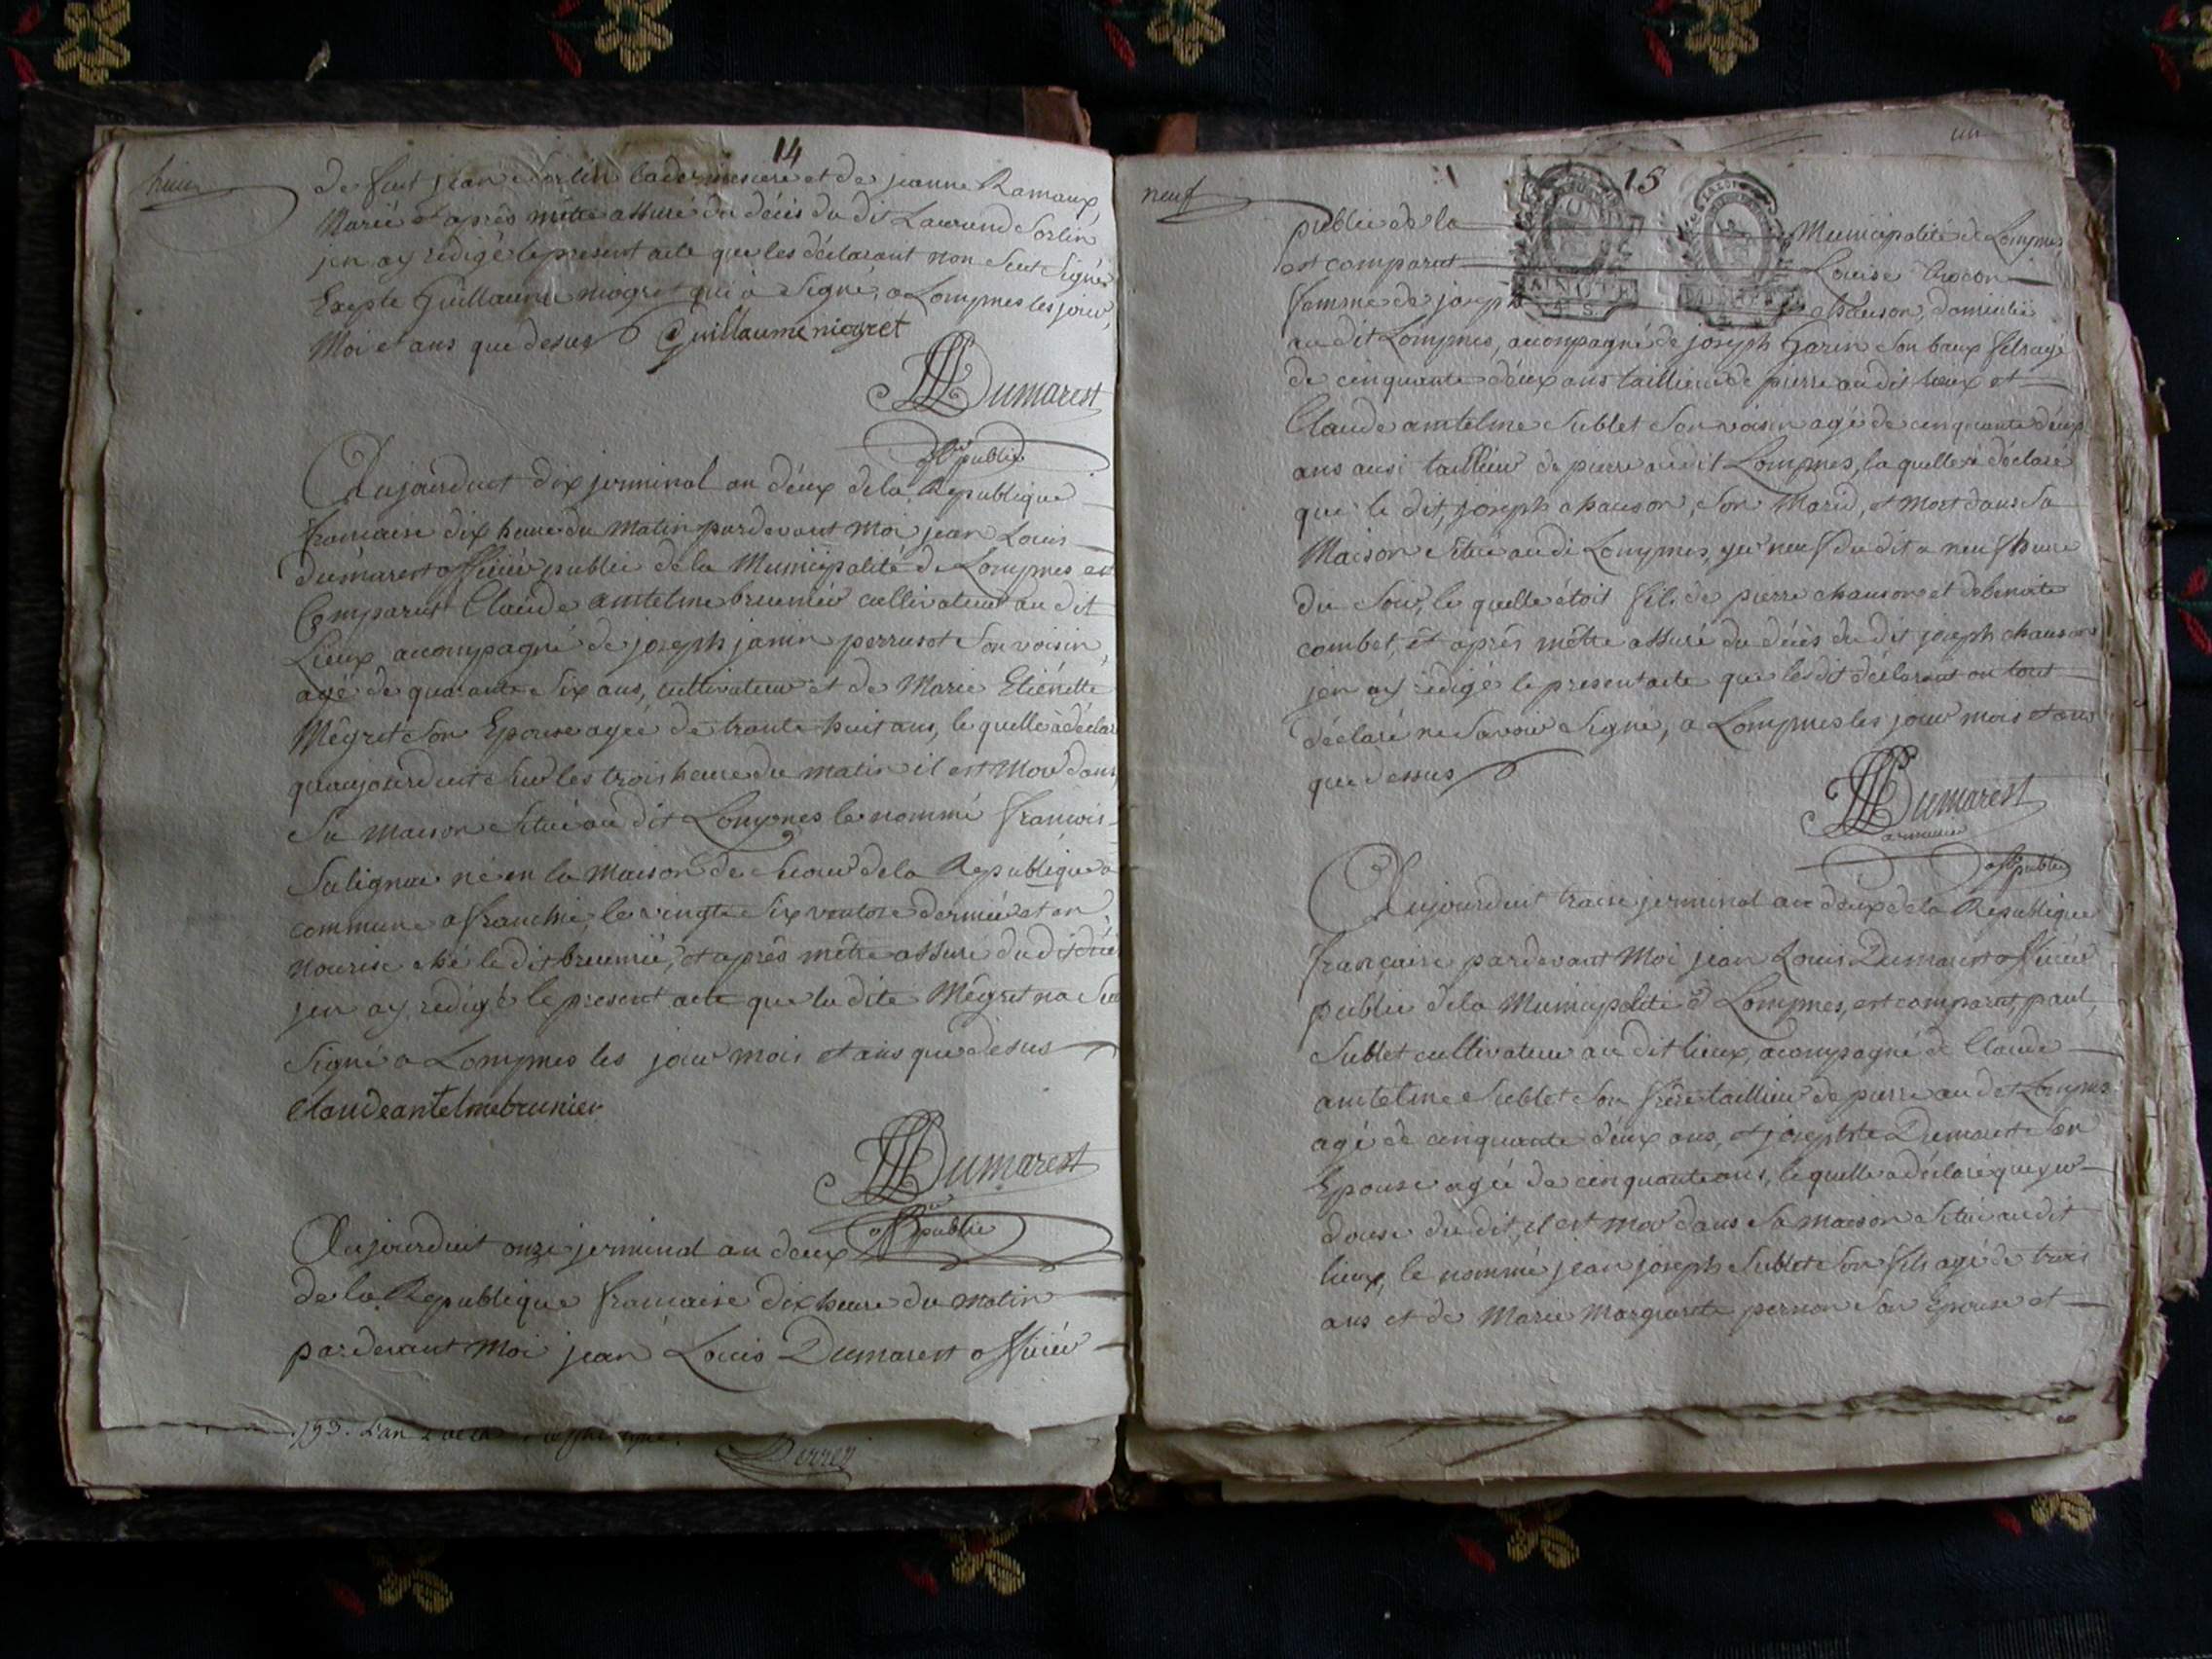 14
huit
de feut jean Sorlin et de jeanne Ramaux,
Marié et après mêtre assuré du décès du dit Laurend Sorlin
jen ay rédigé le present acte que les déclarant non Seut Signé
Exepte Guillaume niogret qui à Signé, a Lompnes les jour,
Moi et ans que desus Guillaume niogret
JLDumarest
offr public
Aujourduit dix jerminal an déux de la Republique
francaise dix heure du Matin pardevant Moi jean Louis
dumarest officiér public de la Municipalité de Lompnes est
Comparut Claude amtelme bruniér cultivateur au dit
Lieux acompagné de joseph janin perrusot Son voisin,
agé de quarante Six ans, cultivateur et de Marie Etiénette
Mêgret Son Epouse agée de trante huit ans, le quelle à déclaré
quaujourduit Sur les trois heure du matin il est Mor dans
Sa maison Situé au dit Lompnes le nommé francois
Salignac né en la Maison de Secour de la Republique a
commune afranchie, le vingte Six vantose derniér et en
nourise ché le dit bruniér, et après mêtre assuré du dit décès
jen ay redigé le present acte que la dite Mêgret na Seu
Signé a Lompnes les jour mois et ans que desus
Claude antelme brunier
JLDumarest
offr public
Aujourduit onze jerminal an deux
de la Republique francaise dix heure du Matin
pardevant Moi jean Louis Dumarest officiér
193. L'an 2 de la
Perrey
un
neuf
15
public de la Municipalité de Lompnes,
est comparut Louise
femme de joseph chauson, domicilié
au dit Lompnes, acompagné de joseph Garin Son baux fils agé
de cinquante déux ans tailliéur de pierre au dit lieux et
Claude amtelme Sublet Son voisin agé de cinquante déux
ans ausi tailliéur de pierre au dit Lompnes, la quelle à déclaré
que le dit, joseph chauson, Son Marid, et Mort dans Sa
Maison Situé au di Lompnes, yer neuf du dit a neuf heure
du Soir, le quelle étoit fils de pierre chauson et de benoite
combet, et après mêtre assuré du décès du dit joseph chauson
jen ay redigé le present acte que les dit déclarant on tout
déclaré ne Savoir Signé, a Lompnes les jour mois et ans
que dessus
JLDumarest
offr public
Aujourduit traise jerminal an déux de la Republique
francaise pardevant Moi jean Louis Dumarest officiér
public de la Municipalité de Lompnes, est comparut, paul,
Sublet cultivateur au dit lieux, acompagné de Claude
amtelme Sublet Son frère tailliéur de pierre au dit Lompnes
agé de cinquante déux ans, et josephte Dumarest Son
Epouse agée de cinquante ans, le quelle a déclaré que yer
douse du dit, il est mor dans Sa maison Situé au dit
lieux, le nommé jean joseph Sublet Son fils agé de trois
ans et de Marie Margueritte pernon Son Epouse et